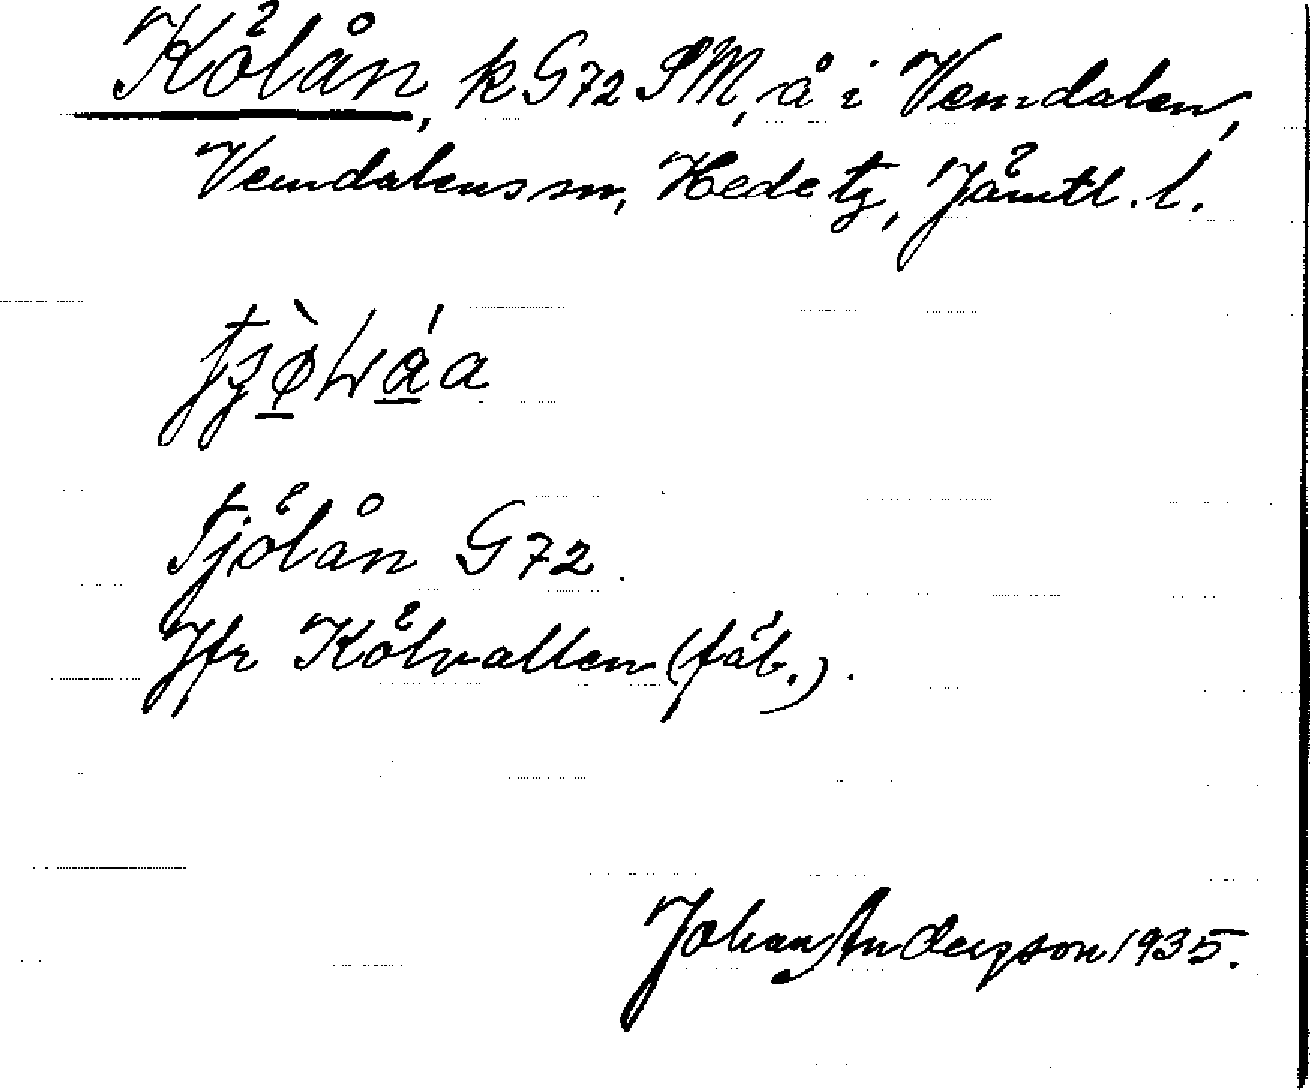 Kölån, k G72 SM, å i Vemdalen,
Vemdalens sn, Hede tg, Jämtl. l.
Tjölån G72
Jfr Kölvallen (fäb.).
Johan Anderson 1935.